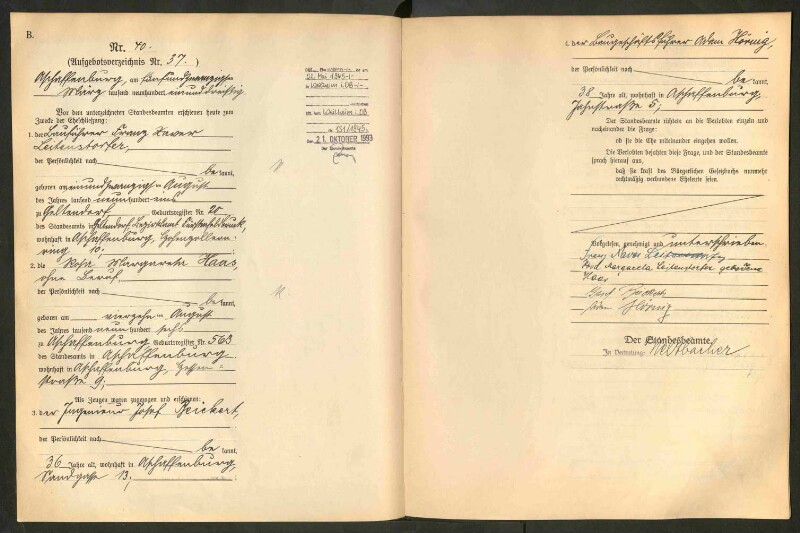 B.
Nr. 40.
(Aufgebotsverzeichnis Nr. 37.)
Aschaffenburg, am fünfundzwanzigsten
März tausend neunhundert einunddreißig
Vor dem unterzeichneten Standesbeamten erschienen heute zum
Zwecke der Eheschließung:
1. der Bauführer Franz Xaver
Leitenstorfer,
der Persönlichkeit nach
be kannt,
geboren am einundzwanzigsten August
des Jahres tausend neunhundert eins
zu Geltendorf, Geburtsregister Nr. 20
des Standesamts in Geltendorf Bezirksamt Fürstenfeldbruck,
wohnhaft in Aschaffenburg, Hohenzollern-
ring 10;
2. die Rosa Margareta Haas,
ohne Beruf,
der Persönlichkeit nach
be kannt,
geboren am vierzehnten August
des Jahres tausend neunhundert sechs
zu Aschaffenburg Geburtsregister Nr. 563
des Standesamts in Aschaffenburg
wohnhaft in Aschaffenburg,
straße 9;
Als Zeugen waren zugezogen und erschienen:
3. der Ingenieur Josef Reichert,
der Persönlichkeit nach
be kannt,
36 Jahre alt, wohnhaft in Aschaffenburg,
Sandgasse 13;
12. Mai 1945
in Weilheim i.OB
Weilheim i.OB
Nr. 131/1945
Den 21. OKTOBER 1993
Der Standesbeamte
4. der Baugeschäftsführer Adam Hörnig,
der Persönlichkeit nach
be kannt,
38 Jahre alt, wohnhaft in Aschaffenburg,
Jahnstraße 5;
Der Standesbeamte richtete an die Verlobten einzeln und
nacheinander die Frage:
ob sie die Ehe miteinander eingehen wollen.
Die Verlobten bejahten diese Frage, und der Standesbeamte
sprach hierauf aus,
daß sie kraft des Bürgerlichen Gesetzbuchs nunmehr
rechtmäßig verbundene Eheleute seien.
Vorgelesen, genehmigt und unterschrieben
Franz Xaver Leitenstorfer
Rosa Margareta Leitenstorfer geborene
Haas
Josef Reichert
Adam Hörnig
Der Standesbeamte.
In Vertretung: Weltbacher